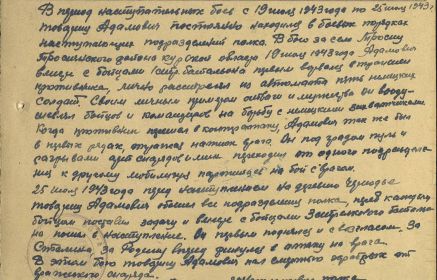 В период наступательных боев с 19 июля 1943 года по 25 июля 1943г
товарищ Адамович постоянно находился в боевых порядках
наступающих подразделений полка. В бою за село Тросна
Тросненского района Курской области 19 июля 1943 года Адамович
вместе с бойцами 1 батальона первым ворвался в траншеи
противника, лично расстрелял из автомата пять немецких
солдат. Своим личным примером отваги и мужества он вооду-
шевлял бойцов и командиров на борьбу с немецкими захватчиками
Когда противник перешел в контратаку, Адамович так же был
в первых рядах, отражая натиск врага. Он под градом пуль и
разрывами арт снарядов и мин переходил от одного подразделе-
ния к другому мобилизуя на бой с врагом.
25 июля 1943 года перед наступлением на деревню
товарищ Адамович обошел все подразделения полка, перед каждым
бойцом поставил задачу и вместе с бойцами стрелкового батальо-
на пошел в наступление. Он первым поднялся и с возгласом: За
Сталина, За Родину вперед двинулся в атаку на врага.
В этом бою товарищ Адамович пал смертью храбрых от
вражеского снаряда.
полка